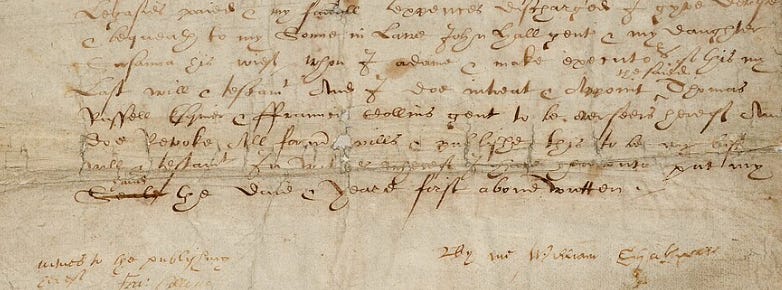 Legacies paied & my funerall expences discharged I gyve devise
& bequeath to my Sonne in Lawe John Hall gent & my daughter
Susanna his wief whom I ordaine & make executors of this my
Last will & testamt And I doe intreat & Appoint the saied Thomas
Russell Esquier & ffrauncis Collins gent to be overseers hereof And
doe Revoke All formr wills & publishe this to be my last
will & testamt In witnes whereof I have hereunto put my
hand Seale the Daie & Yeare first above written
witnes to the publishing
hereof Fra: Collyns
By me William Shakspeare